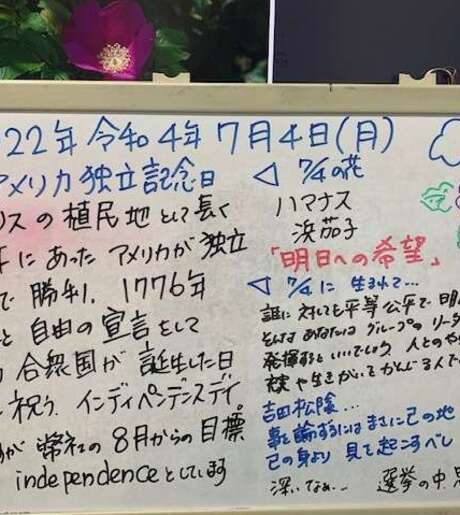 22年 令和4年 7月4日(月)
アメリカ独立記念日
リスの植民地として長く
にあったアメリカが独立
で勝利、1776年
と自由の宣言をして
合衆国が誕生した日
祝う インディペンデンスデイ。
が弊社の8月からの目標
independenceとしています
◁ 7/4の花
ハマナス
浜茄子
「明日への希望」
◁ 7/4に生まれて…
誰に対しても平等公平で明
そんなあなたはグループのリーダ
発揮するといいでしょう 人とのや
や生きがいをかんじる人で
吉田松陰…
事を論ずるにはまさに己の地
己の身より見て起こすべし
深いなぁ… 選挙の中、